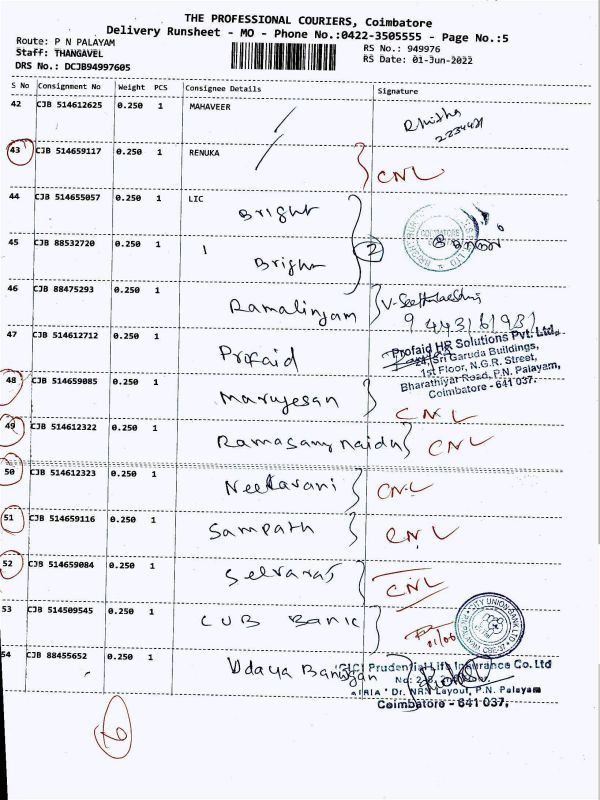 THE PROFESSIONAL COURIERS, Coimbatore
Delivery Runsheet - MO - Phone No.:0422-3505555 - Page No.:5
Route: P N PALAYAM
Staff: THANGAVEL
DRS No.: DCJB94997605
RS No.: 949976
RS Date: 01-Jun-2022
S No Consignment No Weight PCS Consignee Details Signature
42 CJB 514612625 0.250 1 MAHAVEER
43 CJB 514659117 0.250 1 RENUKA CNL
44 CJB 514655057 0.250 1 LIC
Bright
COIMBATORE
45 CJB 88532720 0.250 1
Bright 2
46 CJB 88475293 0.250 1
Ramalingam
47 CJB 514612712 0.250 1
Profaid
Profaid HR Solutions Pvt. Ltd.
24, Sri Garuda Buildings,
1st Floor, N.G.R. Street,
Bharathiyar Road, P.N. Palayam,
Coimbatore - 641 037.
48 CJB 514659085 0.250 1
Murugesan CNL
49 CJB 514612322 0.250 1
Ramasamy Naidu CNL
50 CJB 514612323 0.250 1
Neelavani CNL
51 CJB 514659116 0.250 1
Sampath CNL
52 CJB 514659084 0.250 1
Selvaraj CNL
53 CJB 514509545 0.250 1
CUB Bank
CITY UNION BANK LTD
01/06
54 CJB 88455652 0.250 1
Udaya
ICICI Prudential Life Insurance Co.Ltd
Dr. NRN Layout, P.N. Palayam
Coimbatore - 641 037.